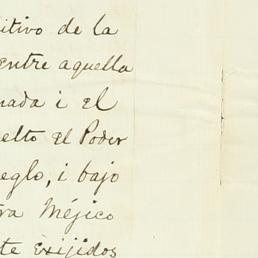 itivo de la
entre aquella
nada i el
elto el Poder
eglo, i bajo
tra Méjico
te exijidos